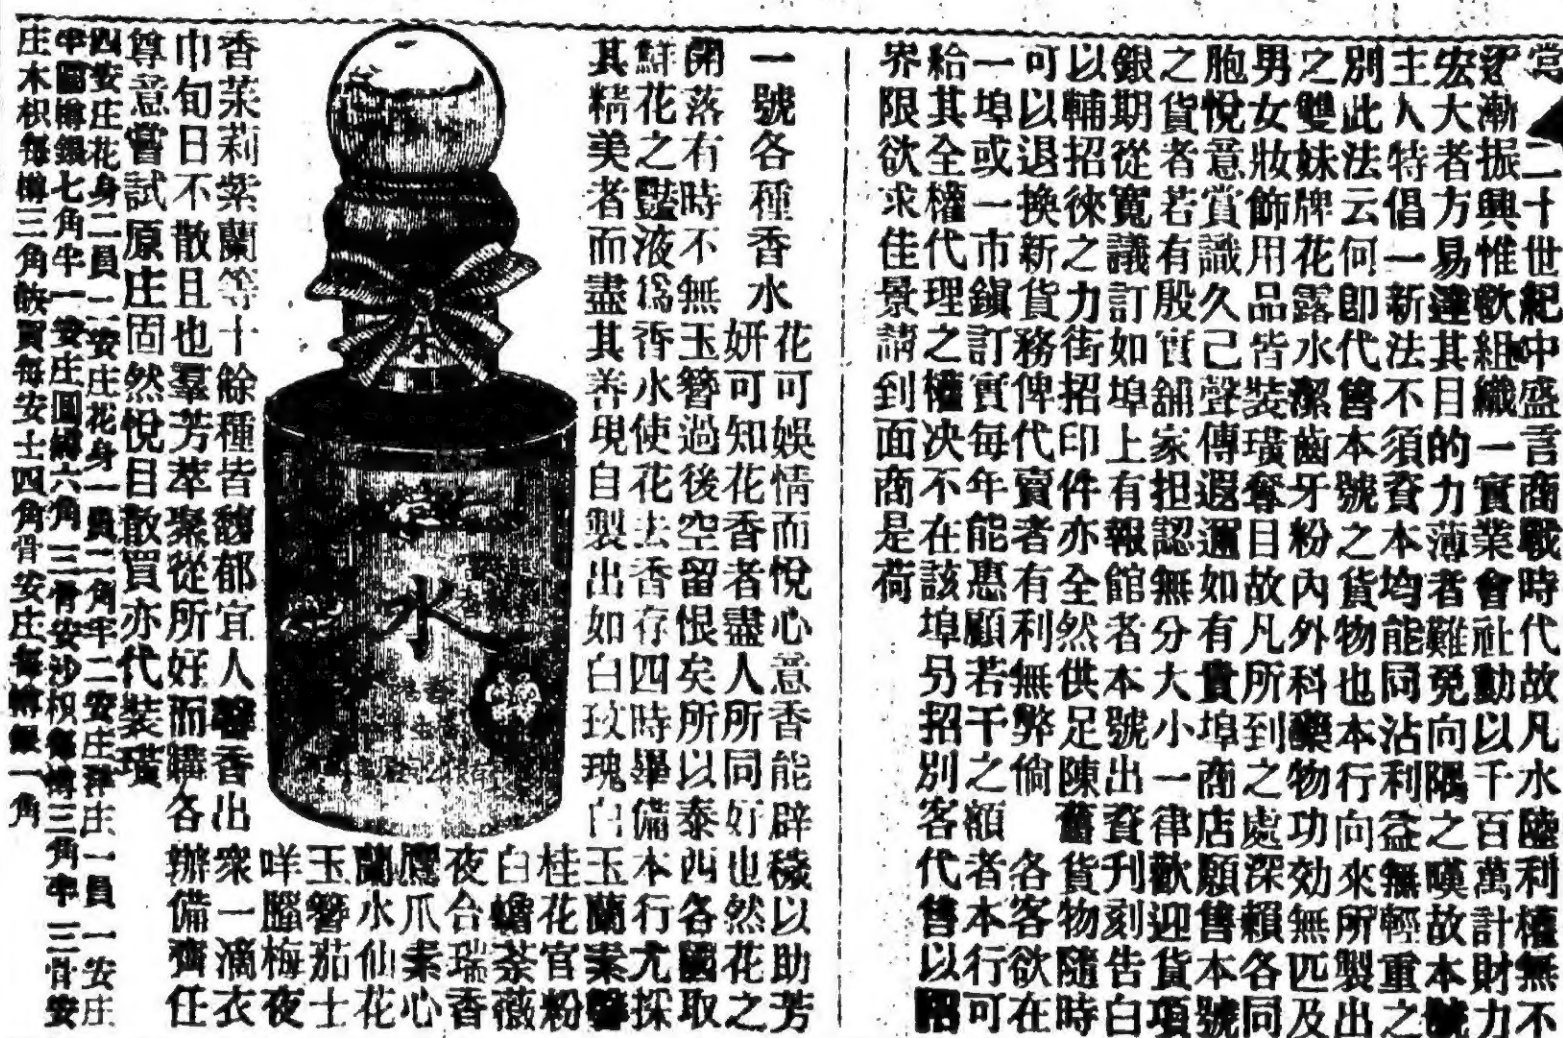 當二十世紀中盛言商戰時代故凡水陸利權無不
逐漸振興惟欲組織一實業會社動以千百萬計財力
宏大者方易達其目的力薄者難免向隅之嘆故本號
主人特倡一新法不須資本均能同沾利益無輕重之
別此法云何即代售本號之貨物也本行向來所製出
之雙妹牌花露水潔齒牙粉內外科藥物功効無匹及
男女妝飾用品皆裝璜奪目故凡所到之處深賴各同
胞悅意賞識久己聲傳遐邇如有貴埠商店願售本號
之貨者若有殷實舖家担認無分大小一律歡迎貨項
銀期從寬議訂如埠上有報館者本號出資刋刻告白
以輔招徠之力街招印件亦全然供足陳舊貨物隨時
可以退換新貨務俾代賣者有利無弊倘各客欲在
一埠或一市鎮訂實每年能惠顧若干之額者本行可
給其全權代理之權决不在該埠另招別客代售以
界限欲求佳景請到面商是荷
一號各種香水
花可娛情而悅心意香能辟穢以助芳
妍可知花香者盡人所同好也然花之
開落有時不無玉簪過後空留恨矣所以泰西各國取
鮮花之豔液爲香水使花去香存四時畢備本行尤採
其精美者而盡其善現自製出如白玫瑰白玉蘭素馨
桂花官粉
白蟾荼薇
夜合瑞香
鷹爪素心
蘭水仙花
玉簪茄士
咩腦梅夜
香茉莉紫蘭等十餘種皆馥郁宜人馨香出衆一滴衣
巾旬日不散且也羣芳萃聚從所好而購各辦備齊任
尊意嘗試原庄固然悅目散買亦代裝璜
四安庄花身二員二安庄花身一員二角半二安庄洋庄一員一安庄
半圓樽銀七角半一安庄圓樽六角三骨安沙枳每樽三角半三骨安
庄木枳每樽三角散買每安士四角骨安庄每樽銀一角
水